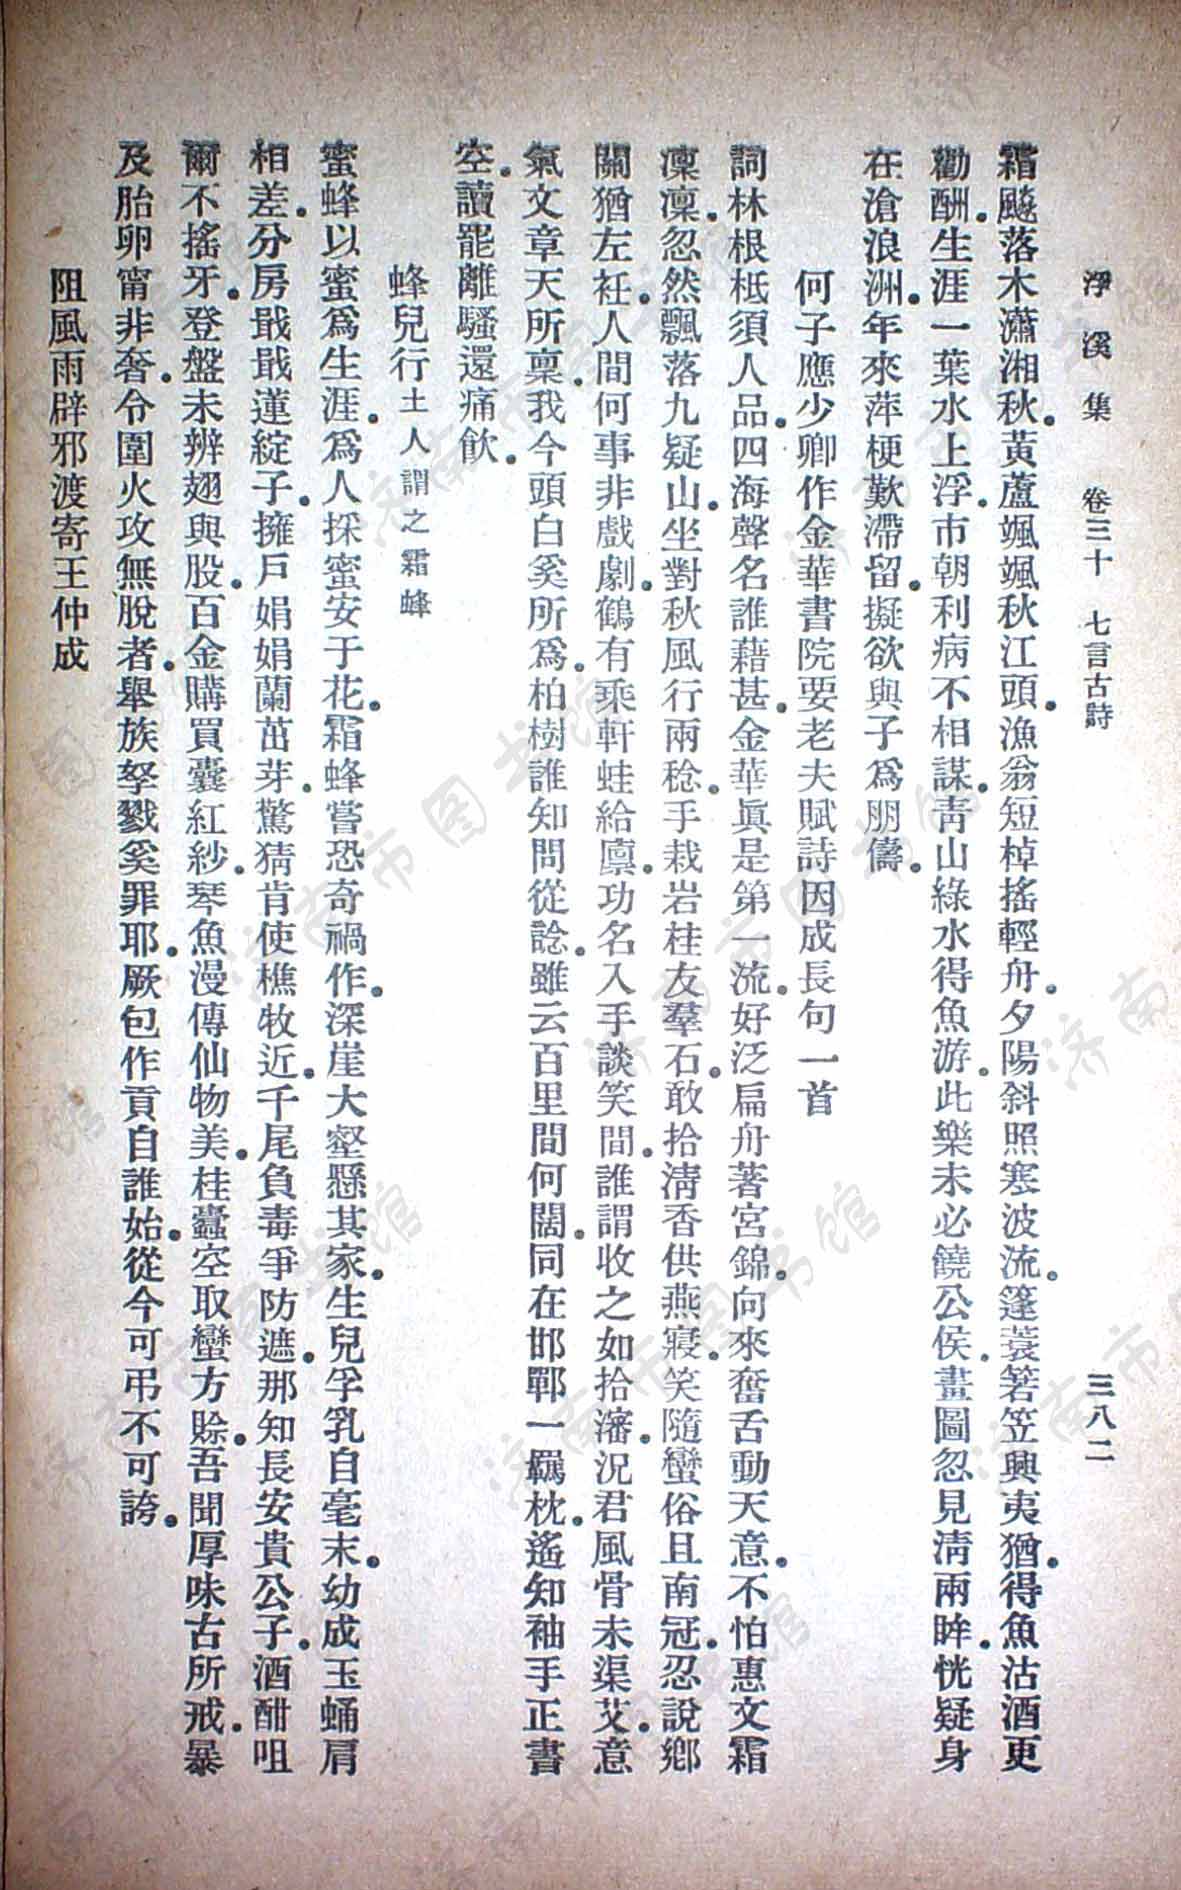 浮溪集 卷三十 七言古詩 三八二
霜飈落木瀟湘秋。黃蘆颯颯秋江頭。漁翁短棹搖輕舟。夕陽斜照寒波流。篷蓑箬笠興夷猶。得魚沽酒更
勸酬。生涯一葉水上浮。市朝利病不相謀。靑山綠水得魚游。此樂未必饒公侯。畫圖忽見淸兩眸。恍疑身
在滄浪洲。年來萍梗歎滯留。擬欲與子爲朋儔。
何子應少卿作金華書院要老夫賦詩因成長句一首
詞林根柢須人品。四海聲名誰藉甚。金華眞是第一流。好泛扁舟著宮錦。向來奮舌動天意。不怕惠文霜
凜凜。忽然飄落九疑山。坐對秋風行兩稔。手栽岩桂友羣石。敢拾淸香供燕寢。笑隨蠻俗且南冠。忍說鄕
關猶左衽。人間何事非戲劇。鶴有乘軒蛙給廩。功名入手談笑間。誰謂收之如拾瀋。況君風骨未渠艾。意
氣文章天所稟。我今頭白奚所爲。柏樹誰知問從諗。雖云百里間何闊。同在邯鄲一羈枕。遙知袖手正書
空。讀罷離騷還痛飮。
蜂兒行土人謂之霜蜂
蜜蜂以蜜爲生涯。爲人採蜜安于花。霜蜂嘗恐奇禍作。深崖大壑懸其家。生兒孚乳自毫末。幼成玉蛹肩
相差。分房戢戢蓮綻子。擁戶娟娟蘭茁芽。驚猜肯使樵牧近。千尾負毒爭防遮。那知長安貴公子。酒酣咀
爾不搖牙。登盤未辨翅與股。百金購買囊紅紗。琴魚漫傳仙物美。桂蠹空取蠻方賒。吾聞厚味古所戒。暴
及胎卵甯非奢。令圍火攻無脫者。舉族孥戮奚罪耶。厥包作貢自誰始。從今可弔不可誇。
阻風雨辟邪渡寄王仲成
济南市图书馆